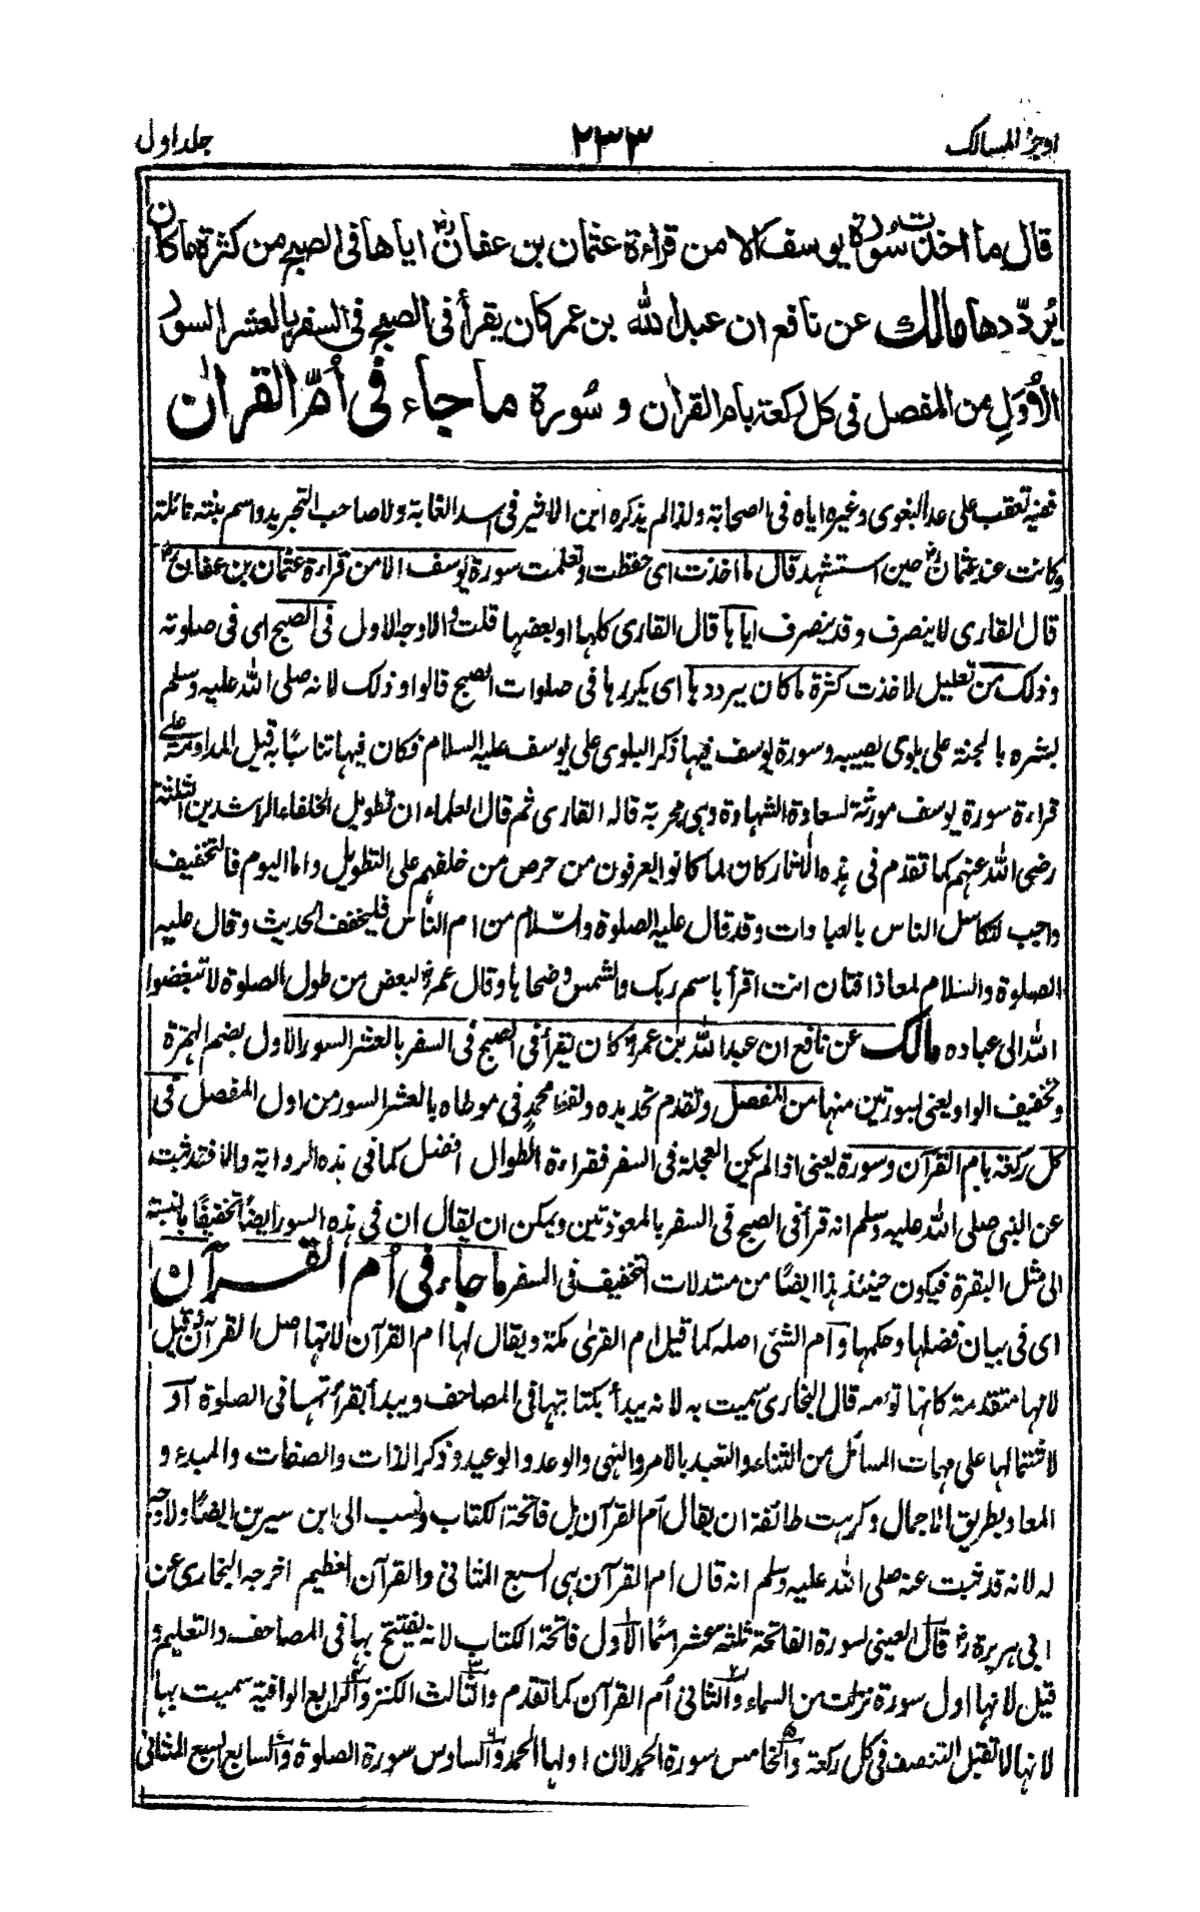 اوجز المسالك
٢٣٣
جلد اول
قال ما اخذت سورة يوسف الا من قراءة عثمان بن عفان اياها فى الصبح من كثرة ما كان
يُردّدها مالك عن نافع ان عبد الله بن عمر كان يقرأ فى الصبح فى السفر بالعشر السور
الأُوَلِ من المفصل فى كل ركعة بام القران و سُورة ما جاء فى أمّ القران
ففيه تعقب على عد البغوى وغيره اياه فى الصحابة ولذا لم يذكره ابن الاثير فى اسد الغابة ولا صاحب التجريد واسم بنته نائلة
وكانت عند عثمان رض حين استشهد قال ما اخذت اى حفظت وتعلمت سورة يوسف الا من قراءة عثمان بن عفان رض
قال القارى لا ينصرف وقد ينصرف اياها قال القارى كلها او بعضها قلت والاوجه الاول فى الصبح اى فى صلوته
وذلك من تعليل لاخذت كثرة ما كان يرددها اى يكررها فى صلوات الصبح قالوا وذلك لانه صلى الله عليه وسلم
بشره بالجنة على بلوى تصيبه وسورة يوسف فيها ذكر البلوى على يوسف عليه السلام فكان فيها تناسبًا به قيل المداومة على
قراءة سورة يوسف مورثة لسعادة الشهادة وهى مجربة قاله القارى ثم قال العلماء ان تطويل الخلفاء الراشدين الثلثة
رضى الله عنهم كما تقدم فى هذه الأثار كان لما كانوا يعرفون من حرص من خلفهم على التطويل واما اليوم فالتخفيف
واجب لتكاسل الناس بالعبادات وقد قال عليه الصلوة والسلام من ام الناس فليخفف الحديث وقال عليه
الصلوة والسلام لمعاذ افتان انت اقرأ باسم ربك والشمس وضحاها وقال عمر رض لبعض من طول الصلوة لا تبغضوا
الله الى عباده مالك عن نافع ان عبد الله بن عمر رض كان يقرأ فى الصبح فى السفر بالعشر السور الاول بضم الهمزة
وتخفيف الواو يعنى بسورتين منها من المفصل وتقدم تحديده ولفظ محمد فى موطاه بالعشر السور من اول المفصل فى
كل ركعة بام القرآن وسورة يعنى اذا لم يكن العجلة فى السفر فقراءة الطوال افضل كما فى هذه الرواية والا فقد ثبت
عن النبى صلى الله عليه وسلم انه قرأ فى الصبح فى السفر بالمعوذتين ويمكن ان يقال ان فى هذه السور ايضًا تخفيفًا بالنسبة
الى مثل البقرة فيكون حينئذ هذا ايضًا من مستدلات التخفيف فى السفر ما جاء فى أم القرآن
اى فى بيان فضلها وحكمها وام الشئ اصله كما قيل ام القرى مكة ويقال لها ام القرآن لانها اصل القرآن وقيل
لانها متقدمة كانها تؤمه قال البخارى سميت به لانه يبدأ بكتابتها فى المصاحف ويبدأ بقرأتها فى الصلوة او
لاشتمالها على مهمات المسائل من الثناء والتعبد بالامر والنهى والوعد والوعيد وذكر الذات والصفات والمبدء و
المعاد بطريق الاجمال وكرهت طائفة ان يقال ام القرآن بل فاتحة الكتاب ونسب الى ابن سيرين ايضًا ولا وجه
له لانه قد ثبت عنه صلى الله عليه وسلم انه قال ام القرآن هى السبع المثانى والقرآن العظيم اخرجه البخارى عن
ابى هريرة رض قال العينى لسورة الفاتحة ثلثة عشر اسمًا الاول فاتحة الكتاب لانه يفتتح بها فى المصاحف والتعليم و
قيل لانها اول سورة نزلت من السماء والثانى أم القرآن كما تقدم والثالث الكنز والرابع الوافية سميت بها
لانها لا تقبل التنصف فى كل ركعة والخامس سورة الحمد لان اولها الحمد والسادس سورة الصلوة والسابع السبع المثانى